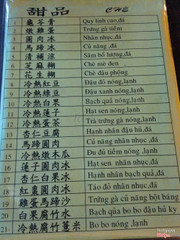 甜品 CHÈ
1 龜苓膏 Quy linh cao,đá
2 燉雞蛋 Trứng gà tiềm
3 圓肉冰 Nhãn nhục,đá
4 馬蹄冰 Củ năng ,đá
5 清補涼 Sâm bổ lượng,đá
6 芝麻糊 Chè mè đen
7 花生糊 Chè đậu phộng
8 冷熱紅豆 Đậu đỏ nóng,lạnh
9 冷熱綠豆 Đậu xanh nóng,lạnh
10 冷熱白果 Bạch quả nóng,lạnh
11 冷熱蓮子 Hạt sen nóng,lạnh
12 冷熱蛋茶 Trà trứng nóng,lạnh
13 杏仁豆腐 Hạnh nhân đậu hủ,đá
14 馬蹄圓肉 Củ năng nhãn nhục,đá
15 冷熱燉木瓜 Đu đủ tiềm nóng,lạnh
16 蓮子圓肉冰 Hạt sen nhãn nhục,đá
17 杏仁白果冰 Hạnh nhân bạch quả,đá
18 紅棗圓肉冰 Táo đỏ nhãn nhục,đá
19 雞蛋馬蹄沙 Trứng gà củ năng bột báng
20 白果腐竹水 Bạch qủa bo bo đậu hủ ky
21 冷熱腐竹薏米 Bo bo nóng ,lạnh